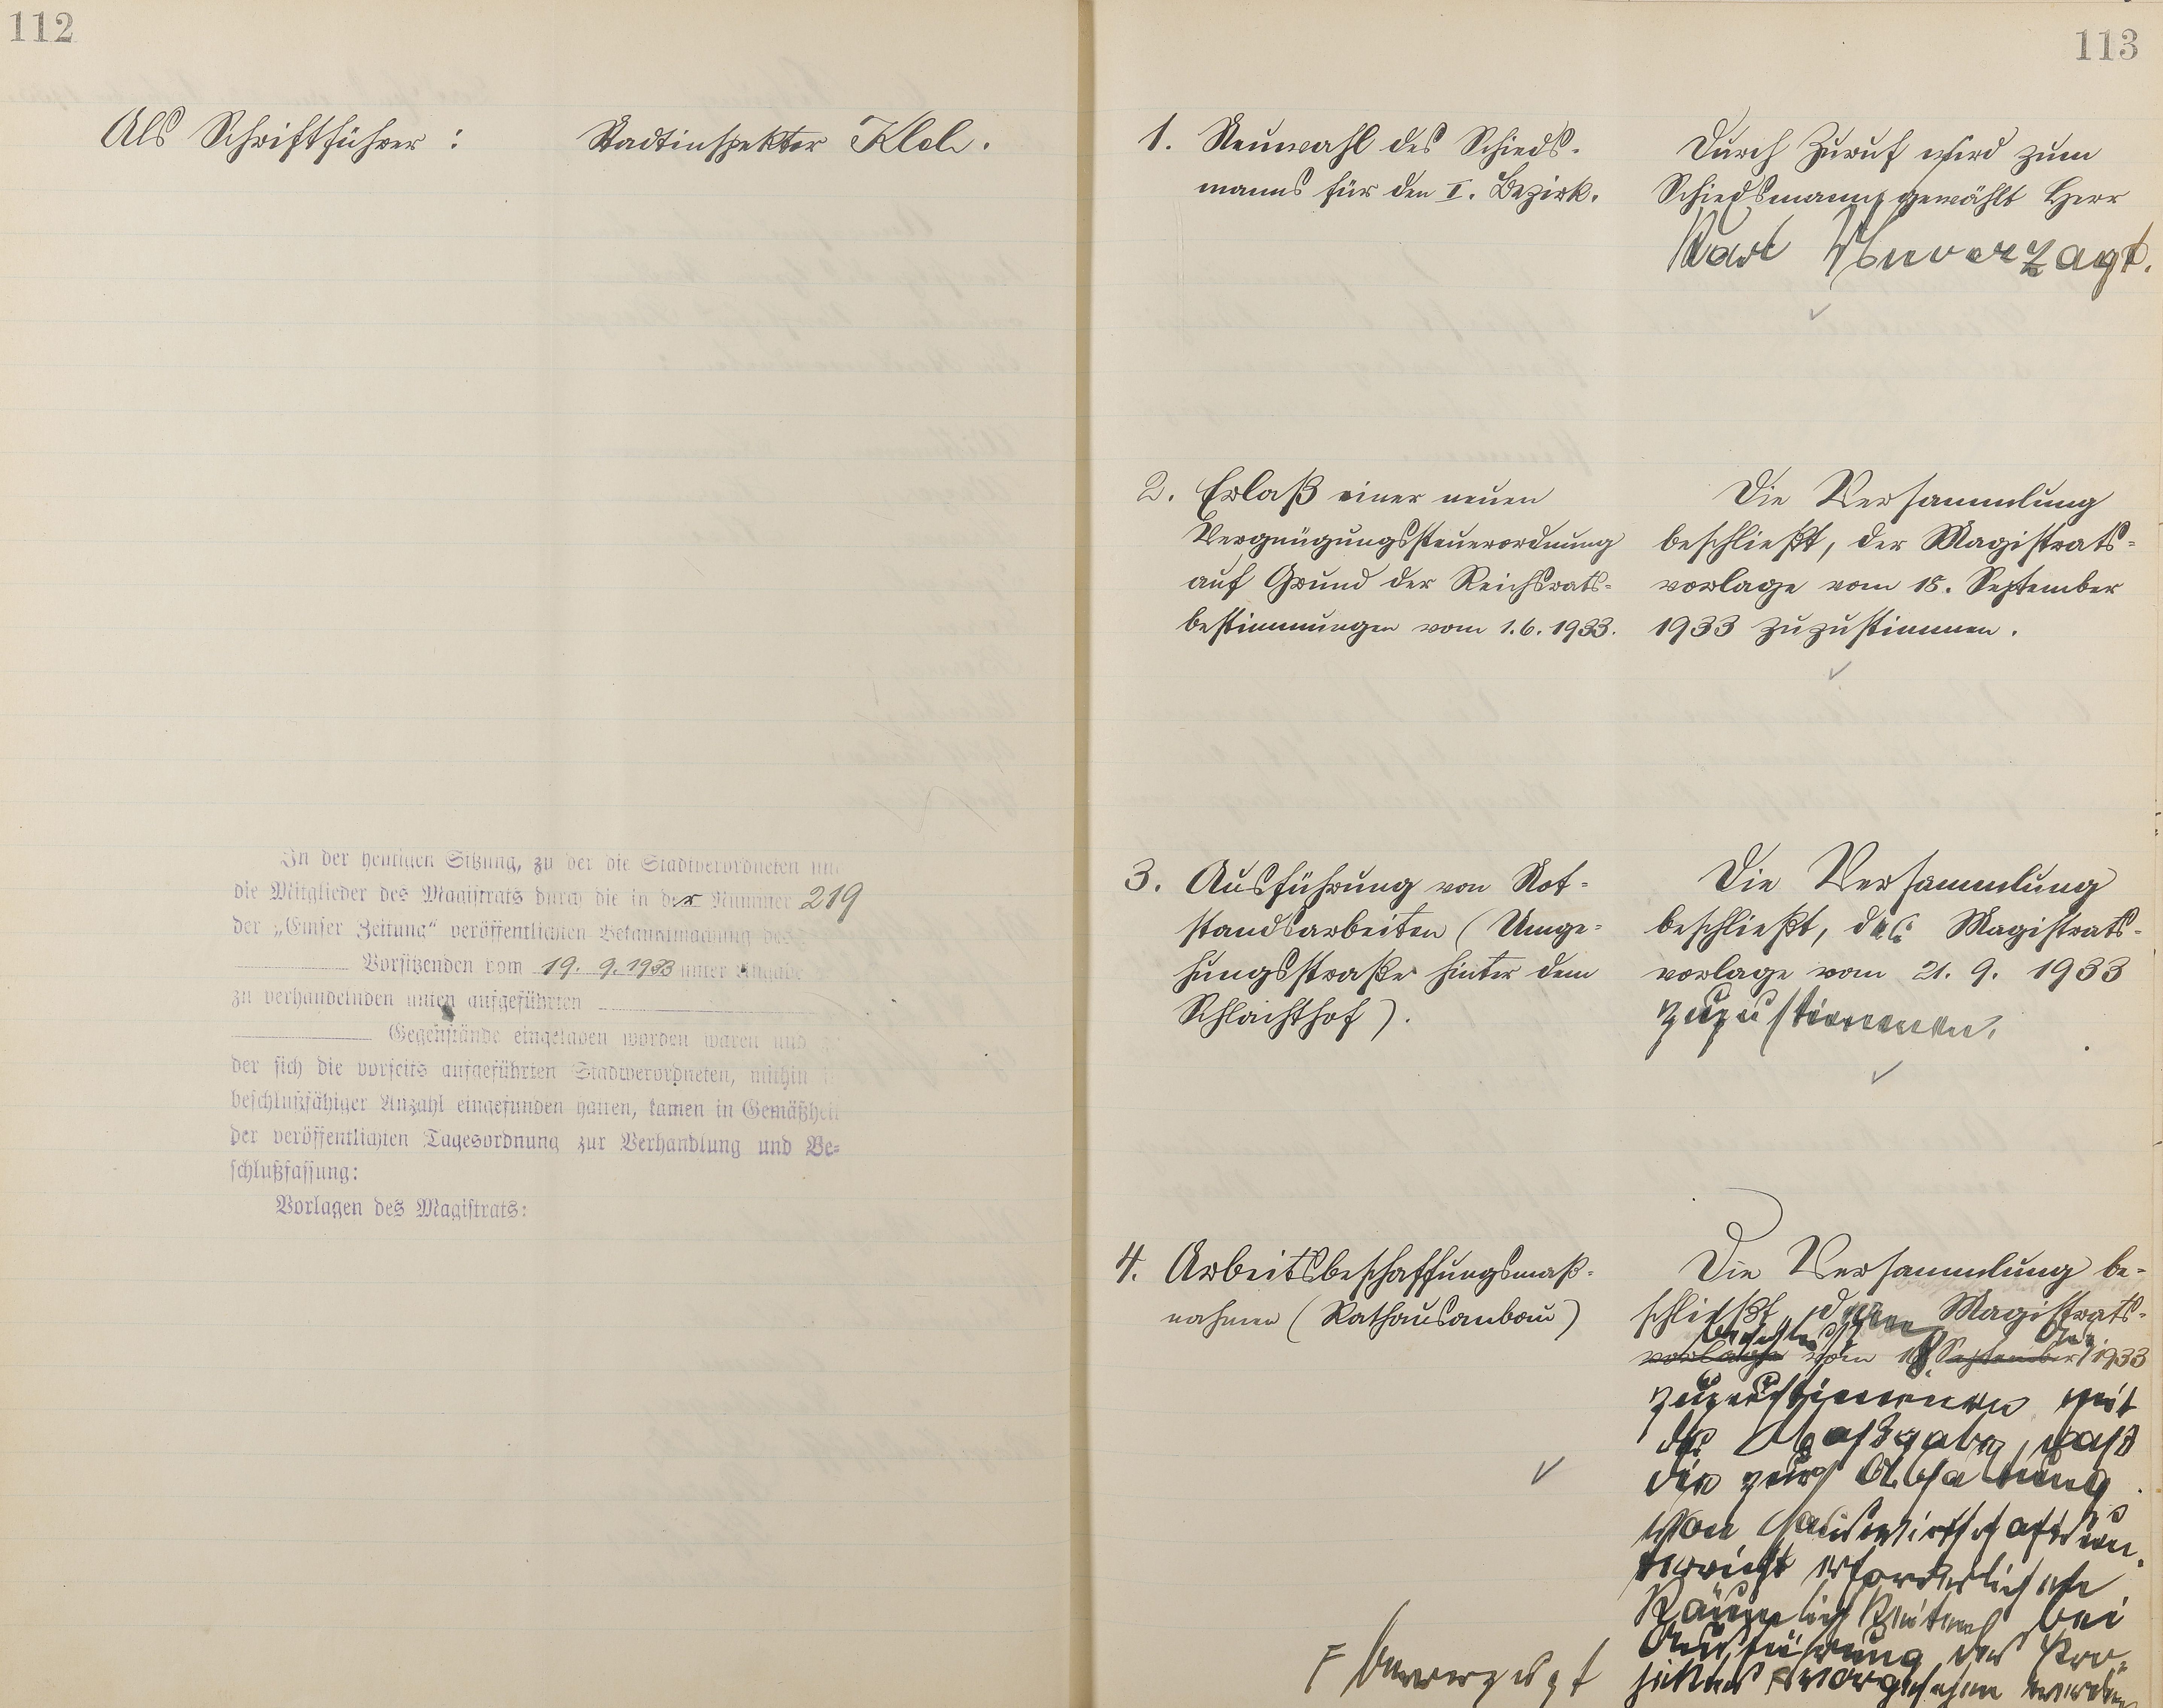 112
Als Schriftführer :
Stadtinspektor Kloh.
In der heutigen Sitzung, zu der die Stadtverordneten un
die Mitglieder des Magistrats durch die in der Nummer 219
der „Emser Zeitung“ veröffentlichten Bekanntmachung des
Vorsitzenden vom 19. 9. 1933 unter Angabe
zu verhandelnden unten aufgeführten
Gegenstände eingeladen worden waren und
der sich die vorseits aufgeführten Stadtverordneten, mithin
beschlußfähiger Anzahl eingefunden hatten, kamen in Gemäßheit
der veröffentlichten Tagesordnung zur Verhandlung und Be-
schlußfassung:
Vorlagen des Magistrats:
113
1. Neuwahl des Schieds-
manns für den I. Bezirk.
Durch Zuruf wird zum
Schiedsmann gewählt Herr
Karl Unverzagt.
2. Erlaß einer neuen
Vergnügungssteuerordnung
auf Grund der Reichsrats-
bestimmungen vom 1.6.1933.
Die Versammlung
beschließt, der Magistrats-
vorlage vom 18. September
1933 zuzustimmen.
3. Ausführung von Not-
standsarbeiten (Umge-
hungsstraße hinter dem
Schlachthof).
Die Versammlung
beschließt, der Magistrats-
vorlage vom 21. 9. 1933
zuzustimmen.
4. Arbeitsbeschaffungsmaß-
nahmen (Rathausanbau)
Die Versammlung be-
schließt, dem Magistrats-
beschluß
vorlage vom 18. September 1933
zuzustimmen mit
der Maßgabe, daß
die zur Abhaltung
von Hauswirtschaftsun-
terricht erforderlichen
Räumlichkeiten bei
Ausführung des Pro-
jektes vorgesehen werden
Unverzagt